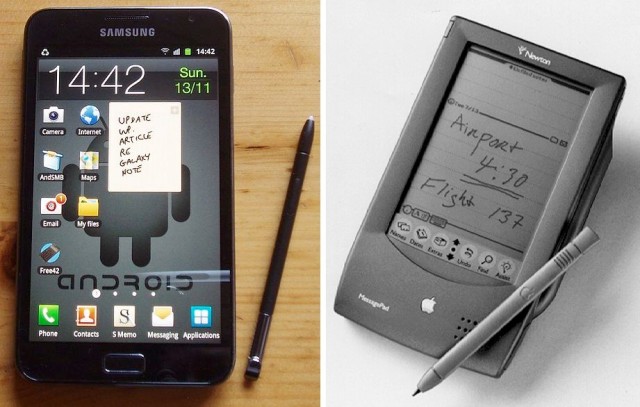 SAMSUNG
14:42
14:42
Sun.
13/11
Camera
Internet
UPDATE
WP.
ARTICLE
RE
GALAXY
NOTE
AndSMB
Maps
Email
My files
Free42
ANDROID
Phone
Contacts
S
S Memo
Messaging
Applications
Newton
Airport
4:30
Flight 137
Names
Dates
Extras
Undo
Find
Assist
MessagePad